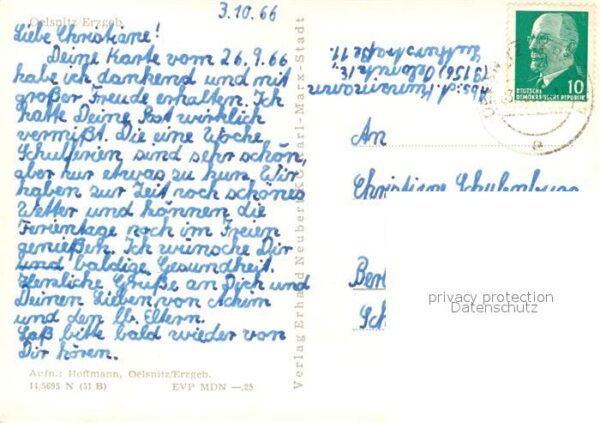 3.10.66
Oelsnitz/Erzgeb.
Liebe Christiane!
Deine Karte vom 26.9.66
habe ich dankend und mit
großer Freude erhalten. Ich
hatte Deine Post wirklich
vermißt. Die eine Woche
Schulferien sind sehr schön,
aber nur etwas zu kurz. Wir
haben zur Zeit noch schönes
Wetter und können die
Ferientage noch im Freien
genießen. Ich wünsche Dir
und baldige Gesundheit.
Herzliche Grüße an Dich und
Deinen Lieben von Achim
und den lb. Eltern.
Laß bitte bald wieder von
Dir hören.
Aufn.: Hoffmann, Oelsnitz/Erzgeb.
14/5695 N (51 B) EVP MDN —.25
Verlag Erhard Neubert KG Karl-Marx-Stadt
Abs: J.
(9156) Oelsnitz/E.
11.
DEUTSCHE
DEMOKRATISCHE REPUBLIK
10
An
Christiane Schulenburg
Ber
Sch
privacy protection
Datenschutz